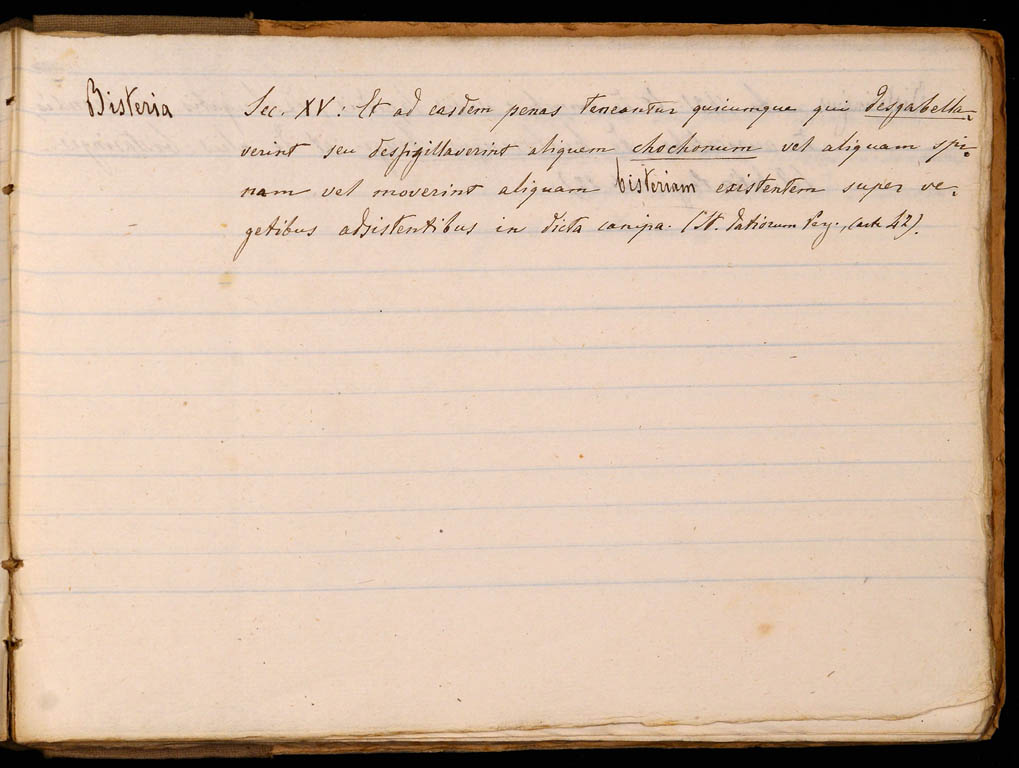 Bisteria Sec. XV: Et ad easdem penas teneantur quicumque qui desgabella-
verint seu desfigillaverint aliquem chochonum vel aliquam spi-
nam vel moverint aliquam bisteriam existentem super ve-
getibus adsistentibus in dicta canipa. (St. datiorum Rey., carta 42).